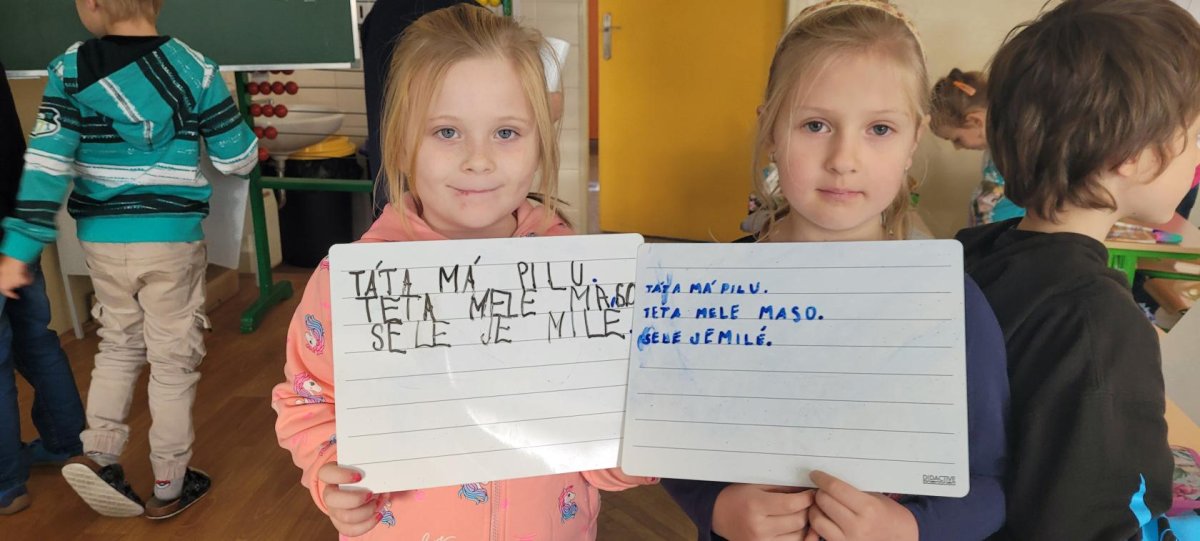 TÁTA MÁ PILU.
TETA MELE MASO
SELE JE MILÉ.
TÁTA MÁ PILU.
TETA MELE MASO.
SELE JE MILÉ.
DIDACTIVE